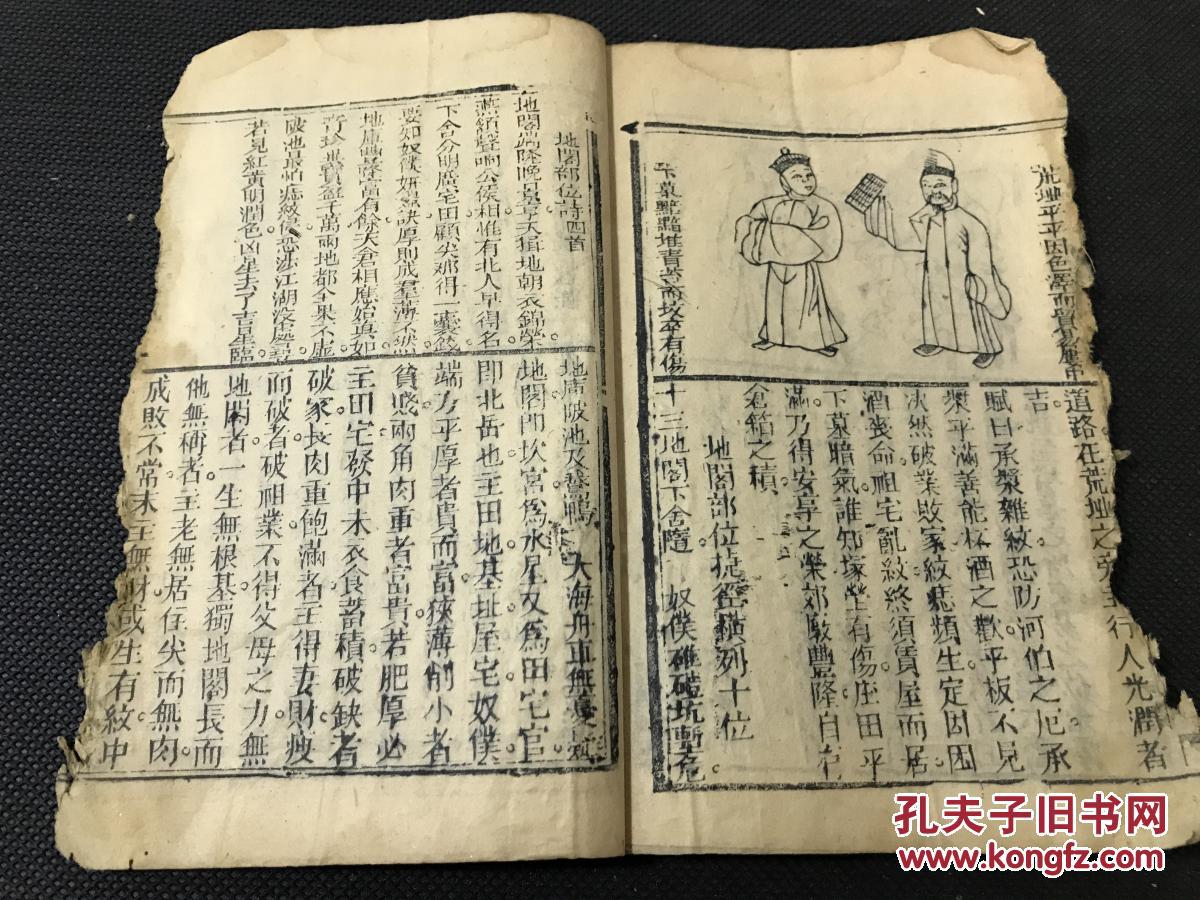 荒坵平平因色澤而
下墓點點堆青苔而坟卒有傷
道路在荒坵之旁主行人光潤者
吉。
賦曰承漿雜紋恐防河伯之厄承
漿平滿善能杯酒之歡。平板不見
決然破業敗家紋痣頻生定因困
酒喪命祖宅亂紋終須賃屋而居
下墓暗氣誰知塚塋有傷庄田平
滿乃得安享之榮郊敭豐隆自有
倉箱之積
地閣部位捷徑橫列十位
十三地閣下舍隨 奴僕碓磑坑塹危
地庫陂池及鵞鴨 大海舟車無憂疑
地閣部位詩四首
地閣端隆晩景享天損地朝衣錦榮
燕頷聲响公侯相惟有北人早得名
下舍分明廣宅田顧尖那得一囊錢
要如奴僕妍媸訣厚則成羣薄不然
地庫豐隆富有餘大倉相應始真如
奇珍異寶盈千萬兩地都全果不虛
陂池最怕痣紋侵恐涉江湖没處尋
若見紅黃明潤色凶星去了吉星臨
地閣卽坎宮為水星又為田宅官
即北岳也主田地基址屋宅奴僕
端方平厚者貴而富狹薄削小者
貧賤兩角肉重者富貴若肥厚必
主田宅發中末衣食蓄積破缺者
破家長肉重飽滿者主得妻財瘦
而破者破祖業不得父母之力無
地閣者一生無根基獨地閣長而
他無稱者主老無居住尖而無肉
成敗不常末主無財或生有紋中
孔夫子旧书网
www.kongfz.com